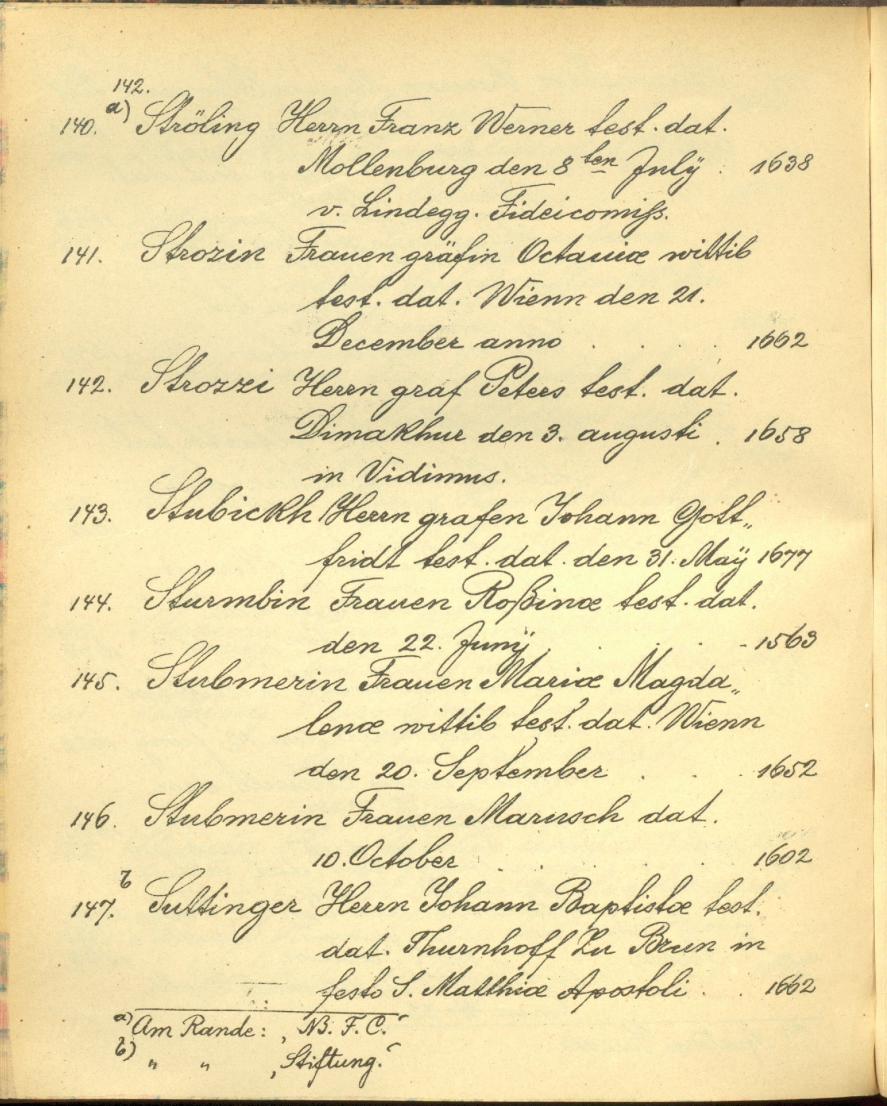 142.
140. a) Ströling Herrn Franz Werner test. dat.
Mollenburg den 8ten Julÿ . 1638
v. Lindegg. Fideicomiss.
141. Strozin Frauen gräfin Octaviæ wittib
test. dat. Wienn den 21.
December anno . . . . 1662
142. Strozzi Herrn graf Peters test. dat.
Dimakhur den 3. augusti . 1658
in Vidimus.
143. Stubickh Herrn grafen Johann Gott„
fridt test. dat. den 31. Maÿ 1677
144. Sturmbin Frauen Roßinæ test. dat.
den 22. Junÿ . . . - 1563
145. Stubmerin Frauen Mariæ Magda„
lenæ wittib test. dat. Wienn
den 20. September . . . 1652
146. Stubmerin Frauen Marusch dat.
10. October . . . . 1602
147. b Suttinger Herrn Johann Baptistæ test.
dat. Thurnhoff Zu Brun in
festo S. Matthiæ Apostoli . . 1662
a) Am Rande: „NB. F. C."
b) " " „Stiftung."